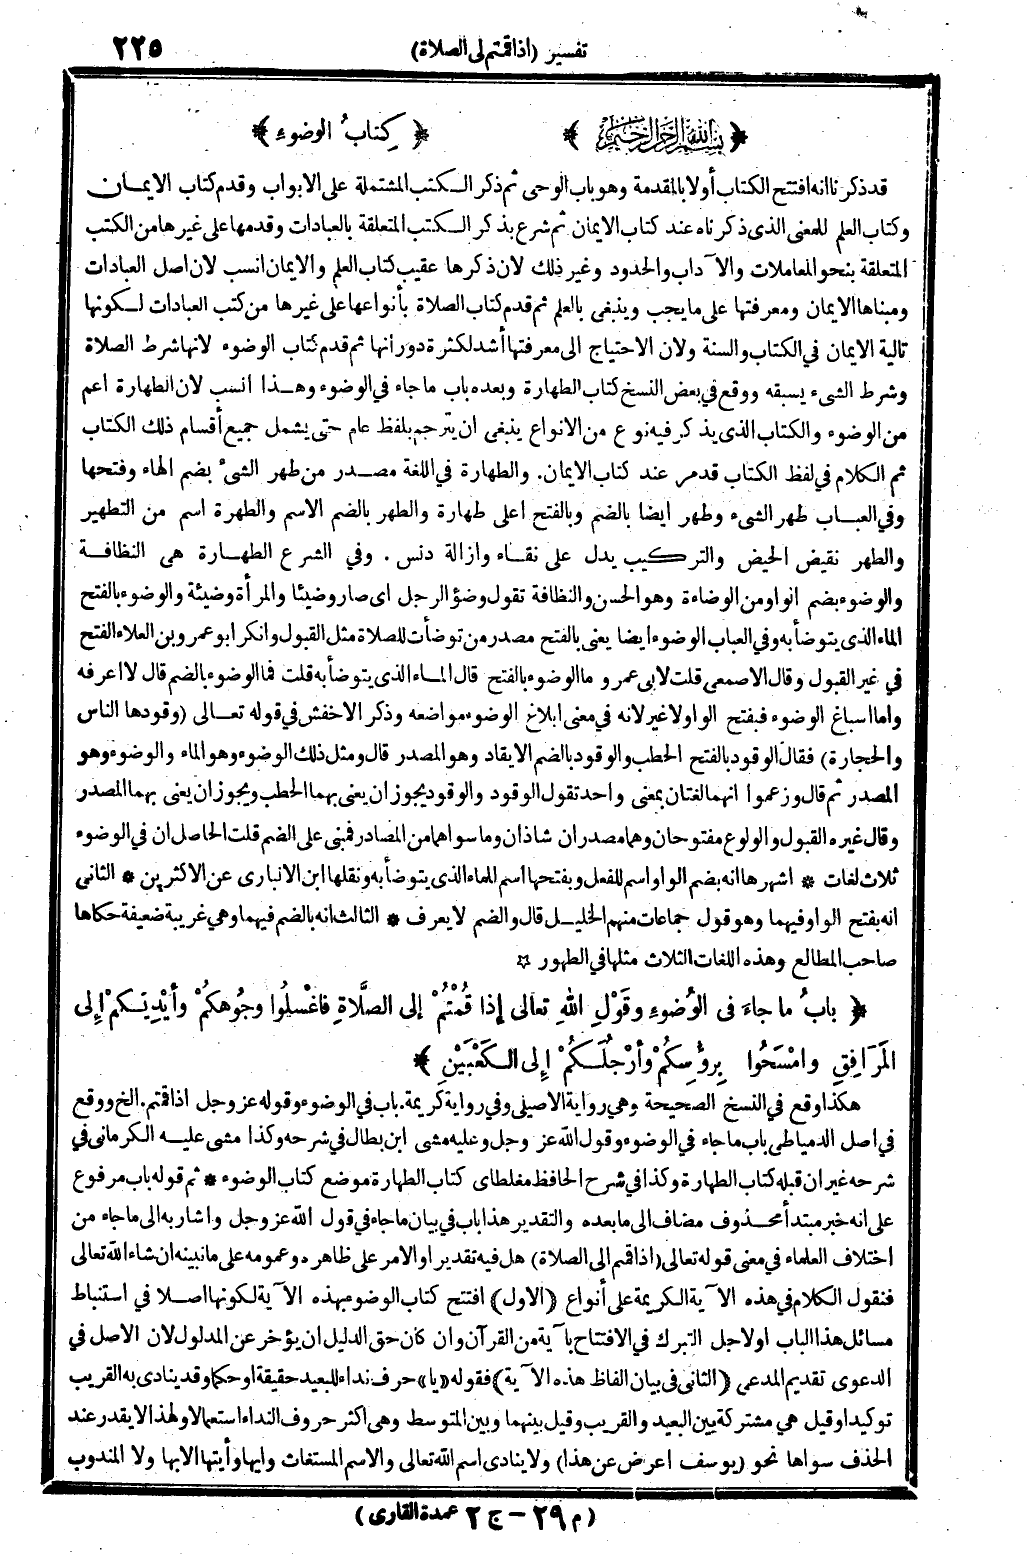 تفسير (اذاقمتم لى الصلاة) ٢٢٥
﴿ بسم الله الرحمن الرحيم ﴾ ﴿ كِتابُ الوضوءِ ﴾
قد ذكرنا انه افتتح الكتاب أولا بالمقدمة وهو باب الوحى ثم ذكر الكتب المشتملة على الابواب وقدم كتاب الايمان
وكتاب العلم للمعنى الذى ذكرناه عند كتاب الايمان ثم شرع بذكر الكتب المتعلقة بالعبادات وقدمها على غيرها من الكتب
المتعلقة بنحو المعاملات والآداب والحدود وغير ذلك لان ذكرها عقيب كتاب العلم والايمان انسب لان اصل العبادات
ومبناها الايمان ومعرفتها على ما يجب وينبغى بالعلم ثم قدم كتاب الصلاة بأنواعها على غيرها من كتب العبادات لكونها
تالية الايمان في الكتاب والسنة ولان الاحتياج الى معرفتها أشد لكثرة دورانها ثم قدم كتاب الوضوء لانها شرط الصلاة
وشرط الشىء يسبقه ووقع في بعض النسخ كتاب الطهارة وبعده باب ما جاء في الوضوء وهذا انسب لان الطهارة اعم
من الوضوء والكتاب الذى يذكر فيه نوع من الانواع ينبغى ان يترجم بلفظ عام حتى يشمل جميع أقسام ذلك الكتاب
ثم الكلام في لفظ الكتاب قدمر عند كتاب الايمان. والطهارة في اللغة مصدر من طهر الشئ بضم الهاء وفتحها
وفي العباب طهر الشىء وطهر ايضا بالضم وبالفتح اعلى طهارة والطهر بالضم الاسم والطهرة اسم من التطهير
والطهر نقيض الحيض والتركيب يدل على نقاء وازالة دنس . وفي الشرع الطهارة هى النظافة
والوضوء بضم الواو من الوضاءة وهو الحسن والنظافة تقول وضؤ الرجل اى صار وضيئا والمرأة وضيئة والوضوء بالفتح
الماء الذى يتوضأ به وفي العباب الوضوء ايضا يعنى بالفتح مصدر من توضأت للصلاة مثل القبول وانكر ابو عمرو بن العلاء الفتح
في غير القبول وقال الاصمعى قلت لابى عمرو ما الوضوء بالفتح قال الماء الذى يتوضأ به قلت فما الوضوء بالضم قال لا اعرفه
واما اسباغ الوضوء فبفتح الواو لا غير لانه في معنى ابلاغ الوضوء مواضعه وذكر الاخفش في قوله تعالى (وقودها الناس
والحجارة) فقال الوقود بالفتح الحطب والوقود بالضم الايقاد وهو المصدر قال ومثل ذلك الوضوء وهو الماء والوضوء وهو
المصدر ثم قال وزعموا انهما لغتان بمعنى واحد تقول الوقود والوقود يجوز ان يعنى بهما الحطب ويجوز ان يعنى بهما المصدر
وقال غيره القبول والولوع مفتوحان وهما مصدران شاذان وما سواهما من المصادر فمبنى على الضم قلت الحاصل ان في الوضوء
ثلاث لغات * اشهرها انه بضم الواو اسم للفعل وبفتحها اسم للماء الذى يتوضأ به ونقلها ابن الانبارى عن الاكثرين * الثانى
انه بفتح الواو فيهما وهو قول جماعات منهم الخليل قال والضم لا يعرف * الثالث انه بالضم فيهما وهي غريبة ضعيفة حكاها
صاحب المطالع وهذه اللغات الثلاث مثلها في الطهور ۞
﴿ بابُ ما جاءَ فى الوُضوءِ وقَوْلِ اللهِ تعالى إذا قُمْتُمْ إلى الصَّلاةِ فاغْسلُوا وجُوهكُمْ وأيْدِيَكمْ إلى
المَرَافِقِ وامْسَحُوا بِرؤُسِكُمْ وأرْجُلَكُمْ إلى الكَعْبَيْنِ ﴾
هكذا وقع في النسخ الصحيحة وهي رواية الاصيلى وفي رواية كريمة. باب في الوضوء وقوله عز وجل اذا قمتم. الخ ووقع
في اصل الدمياطى باب ما جاء في الوضوء وقول الله عز وجل وعليه مشى ابن بطال في شرحه وكذا مشى عليه الكرمانى في
شرحه غير ان قبله كتاب الطهارة وكذا في شرح الحافظ مغلطاى كتاب الطهارة موضع كتاب الوضوء * ثم قوله باب مرفوع
على انه خبر مبتدأ محذوف مضاف الى ما بعده والتقدير هذا باب في بيان ما جاء في قول الله عز وجل واشار به الى ما جاء من
اختلاف العلماء في معنى قوله تعالى (اذا قمتم الى الصلاة) هل فيه تقدير او الامر على ظاهره وعمومه على ما نبينه ان شاء الله تعالى
فنقول الكلام في هذه الآية الكريمة على أنواع (الاول) افتتح كتاب الوضوء بهذه الآية لكونها اصلا في استنباط
مسائل هذا الباب او لاجل التبرك في الافتتاح بآية من القرآن وان كان حق الدليل ان يؤخر عن المدلول لان الاصل في
الدعوى تقديم المدعى (الثانى في بيان الفاظ هذه الآية) فقوله «يا» حرف نداء للبعيد حقيقة او حكما وقد ينادى به القريب
توكيدا وقيل هي مشتركة بين البعيد والقريب وقيل بينهما وبين المتوسط وهى اكثر حروف النداء استعمالا ولهذا لا يقدر عند
الحذف سواها نحو (يوسف اعرض عن هذا) ولا ينادى اسم الله تعالى والاسم المستغاث وايها وأيتها الا بها ولا المندوب
(م ٢٩ – ج ٢ عمدة القارى)